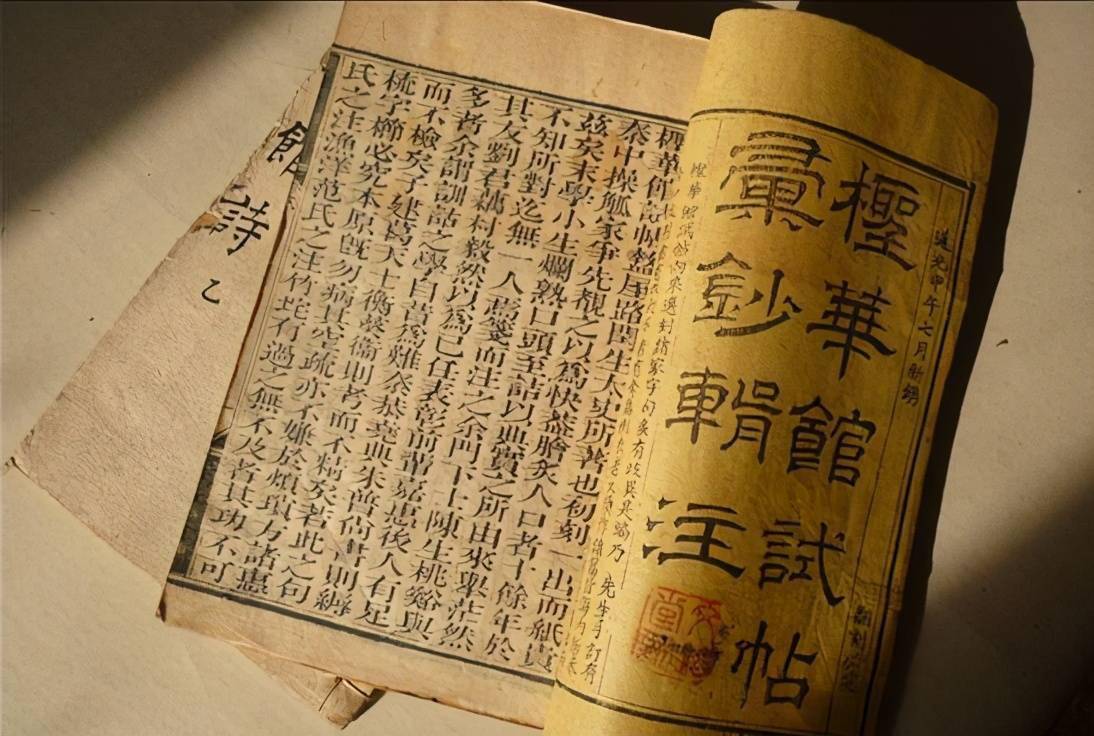 道光甲午七月新鐫
檉華館試帖
彙鈔輯注
檉華館試帖盩厔路閏生太史所著也初刻一出而紙貴
秦中操觚家爭先覩之以為快葢膾炙人口者十餘年於
茲矣末學小生爛熟口頭至詰以典實之所由來舉茫然
不知所對迄無一人爲箋而注之余門下士陳生桃谿與
其友劉君鶴村毅然以為己任表彰前喆嘉惠後人有足
多者余謂訓詁之學自昔爲難秦恭堯典朱普尚書則縟
而不檢矣子建葛天士衡葵衞則考而不精矣若此之句
梳字櫛必究本原旣勿病其空疏亦不嫌於煩瑣方諸惠
氏之注漁洋范氏之注竹垞有過之無不及者其功不可
館詩
乙